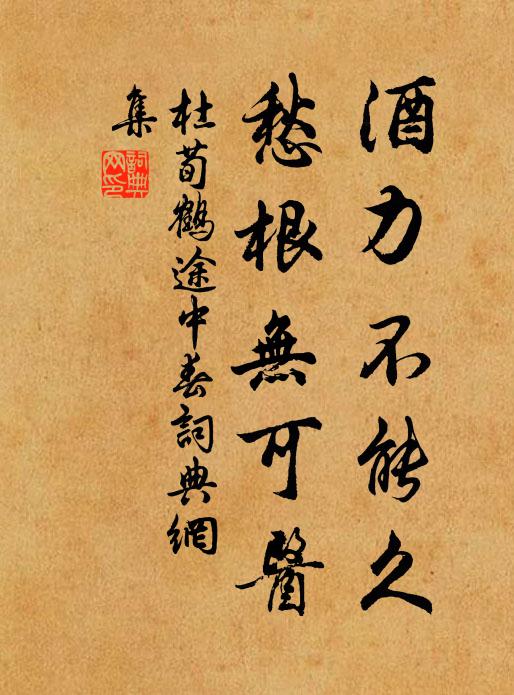 酒力不能久
愁根無可醫
杜荀鶴途中春詞典網
集
詞典
网印